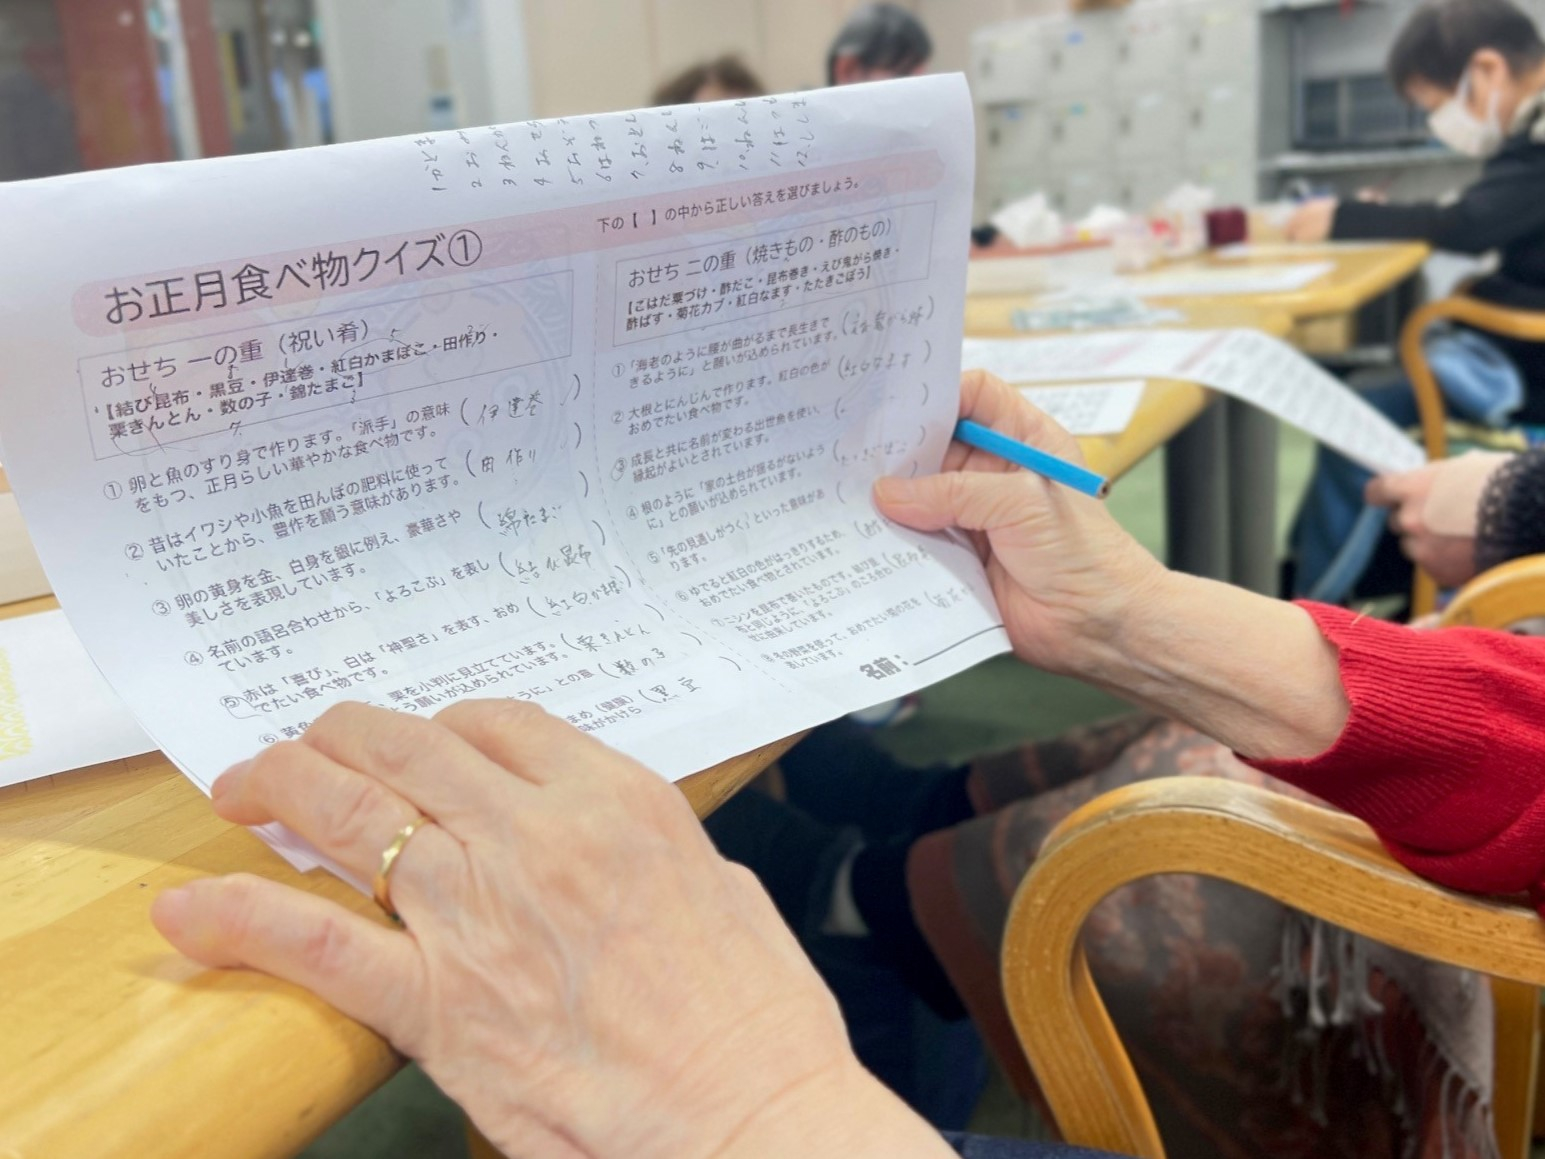 お正月食べ物クイズ①
下の【 】の中から正しい答えを選びましょう。
おせち 一の重（祝い肴）
【結び昆布・黒豆・伊達巻・紅白かまぼこ・田作り・
栗きんとん・数の子・錦たまご】
① 卵と魚のすり身で作ります。「派手」の意味
をもつ、正月らしい華やかな食べ物です。
（伊達巻）
② 昔はイワシや小魚を田んぼの肥料に使って
いたことから、豊作を願う意味があります。
（田作り）
③ 卵の黄身を金、白身を銀に例え、豪華さや
美しさを表現しています。
（綿たまご）
④ 名前の語呂合わせから、「よろこぶ」を表し
ています。
（結び昆布）
⑤ 赤は「喜び」、白は「神聖さ」を表す、おめ
でたい食べ物です。
（紅白かま
⑥ 黄色
栗を小判に見立てています。
う願いが込められています。
（栗きんとん
ように」との意
（数の子
まめ（健康）
味がかけら
（黒豆
おせち 二の重（焼きもの・酢のもの）
【こはだ粟づけ・酢だこ・昆布巻き・えび鬼がら焼き・
酢ばす・菊花カブ・紅白なます・たたきごぼう】
①「海老のように腰が曲がるまで長生きで
きるように」と願いが込められています。
② 大根とにんじんで作ります。紅白の色が
おめでたい食べ物です。
（紅白なます
③ 成長と共に名前が変わる出世魚を使い、
縁起がよいとされています。
④ 根のように「家の土台が揺るがないよう
に」との願いが込められています。
（たたきごぼこ
⑤「先の見通しがつく」といった意味があ
ります。
⑥ ゆでると紅白の色がはっきりするため、
おめでたい食べ物とされています。
⑦ ニシンを昆布で巻いたものです。結び昆
布と同じように、「よろこぶ」のころ合わ
せに由来しています。
⑧ 冬の野菜を使って、おめでたい菊の花を
表しています。
名前：